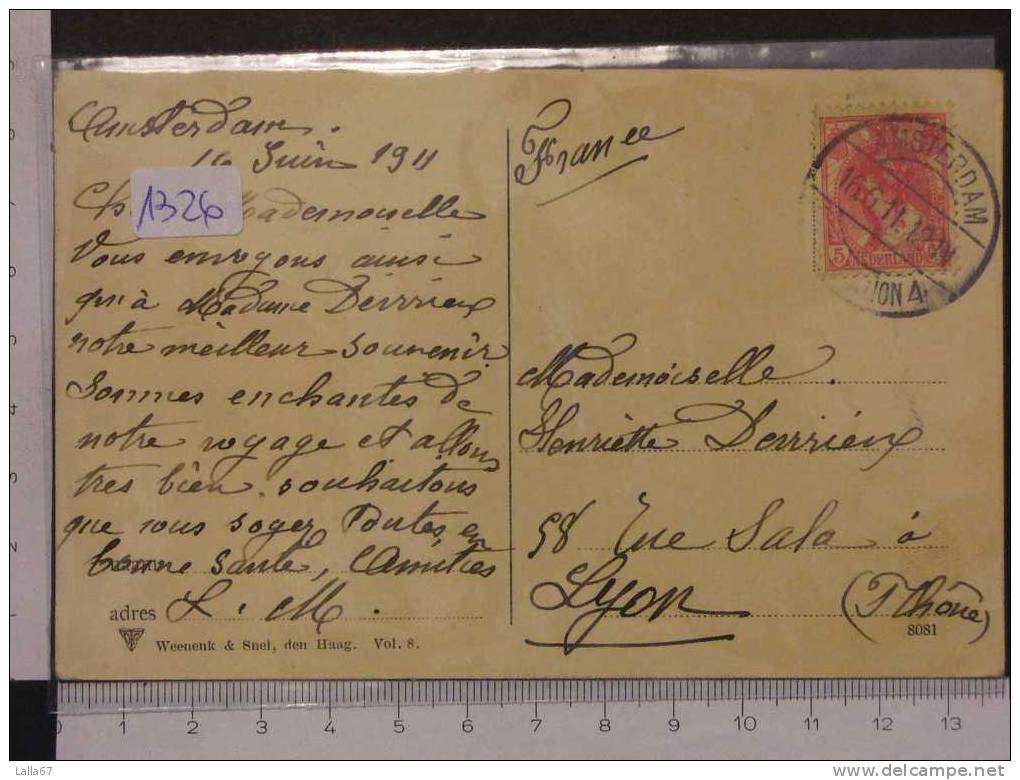 Amsterdam.
16 Juin 1911
1326
Mademoiselle
Vous envoyons ainsi
qu'à Madame Derrieux
notre meilleur souvenir
Sommes enchantés de
notre voyage et allons
tres bien. souhaitons
que vous soyez Toutes en
bonne santé, Amitiés
adres L. M.
Weenenk & Snel, den Haag. Vol. 8.
France
AMSTERDAM
16.6.11. 12-1N
5 NEDERLAND
ION 4
Mademoiselle.
Henriette Derrieux
58 Rue Sala à
Lyon (Rhône)
8081
0 1 2 3 4 5 6 7 8 9 10 11 12 13
Lalla67
www.delcampe.net